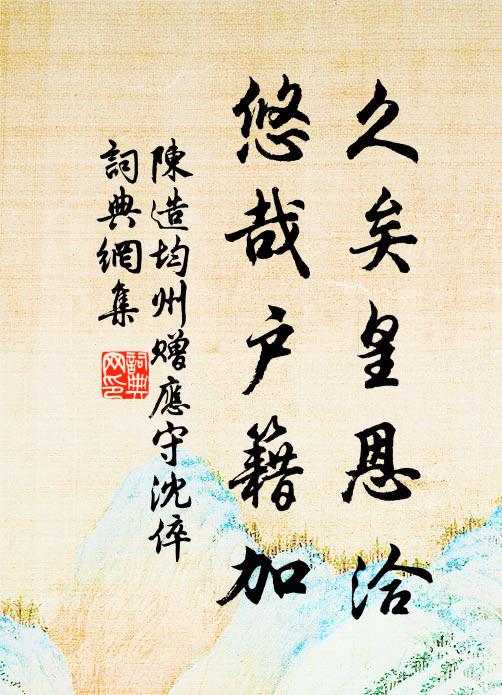 久矣皇恩洽
悠哉户籍加
陳造均州贈應守沈倅
詞典網集
詞典网印